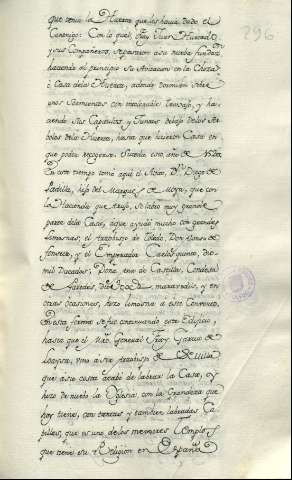 296
que tenia la Huerta que les havia dado el
Canonigo: Con lo qual, Fray Juan Hurtado,
y sus Compañeros, se passaron a su nueva fundacion
haciendo al principio su habitacion en la Choza
o Casa de la Huerta, adonde dormian sobre
unos Sarmientos con trabajo, y ha-
ciendo sus Capitulos y Juntas debajo de los Ar-
boles de la Huerta, hasta que hicieron Casa en
que poder recogerse. Sucedio esto, año de
En este tiempo tomó aqui el Abito, Dn. Diego de
Padilla, hijo del Marques de Moya, que con
la Hacienda que trajo, se labro muy grande
parte de la Casa, a que ayudó mucho con grandes
limosnas, el Arzobispo de Toledo, Don Alonso de
Fonseca, y el Emperador Carlos quinto, dio
mil Ducados: Doña Ana de Castilla, Condesa
de dió maravedis, y en
otras ocasiones, hizo limosna a este Convento.
En esta forma se fue continuando este Edificio,
hasta que el Mro. General Fray Garcia de
Loaysa, vino a ser Arzobispo de Sevilla
que a su costa acabó de labrar la Casa, e
hizo de nuebo la Yglesia con la Grandeza que
hoy tiene, con tantas y tambien labradas Ca-
pillas, que es uno de los mejores Templos,
que tiene su Religion en España